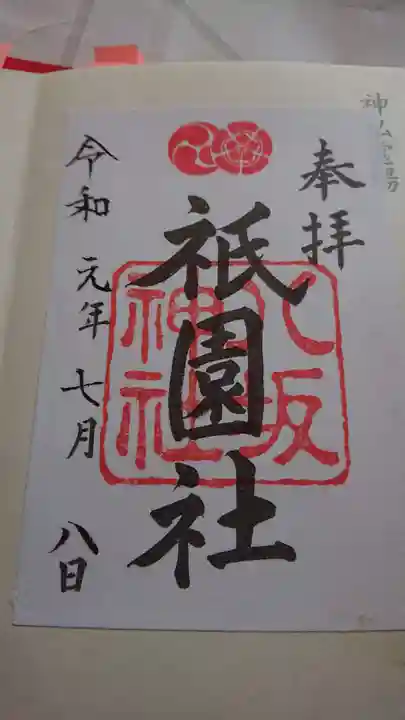 奉拝
祇園社
八坂
神社
令和元年七月八日
神仏霊場